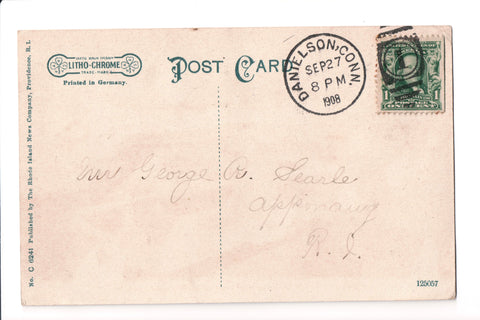 LITHO-CHROME
TRADE-MARK
Printed in Germany.
POST CARD
DANIELSON, CONN.
SEP 27
8 PM
1908
1
POSTAGE
ONE CENT
Mr George B. Searle
Apponaug
R. I.
No. C 6241 Published by The Rhode Island News Company, Providence, R. I.
125057